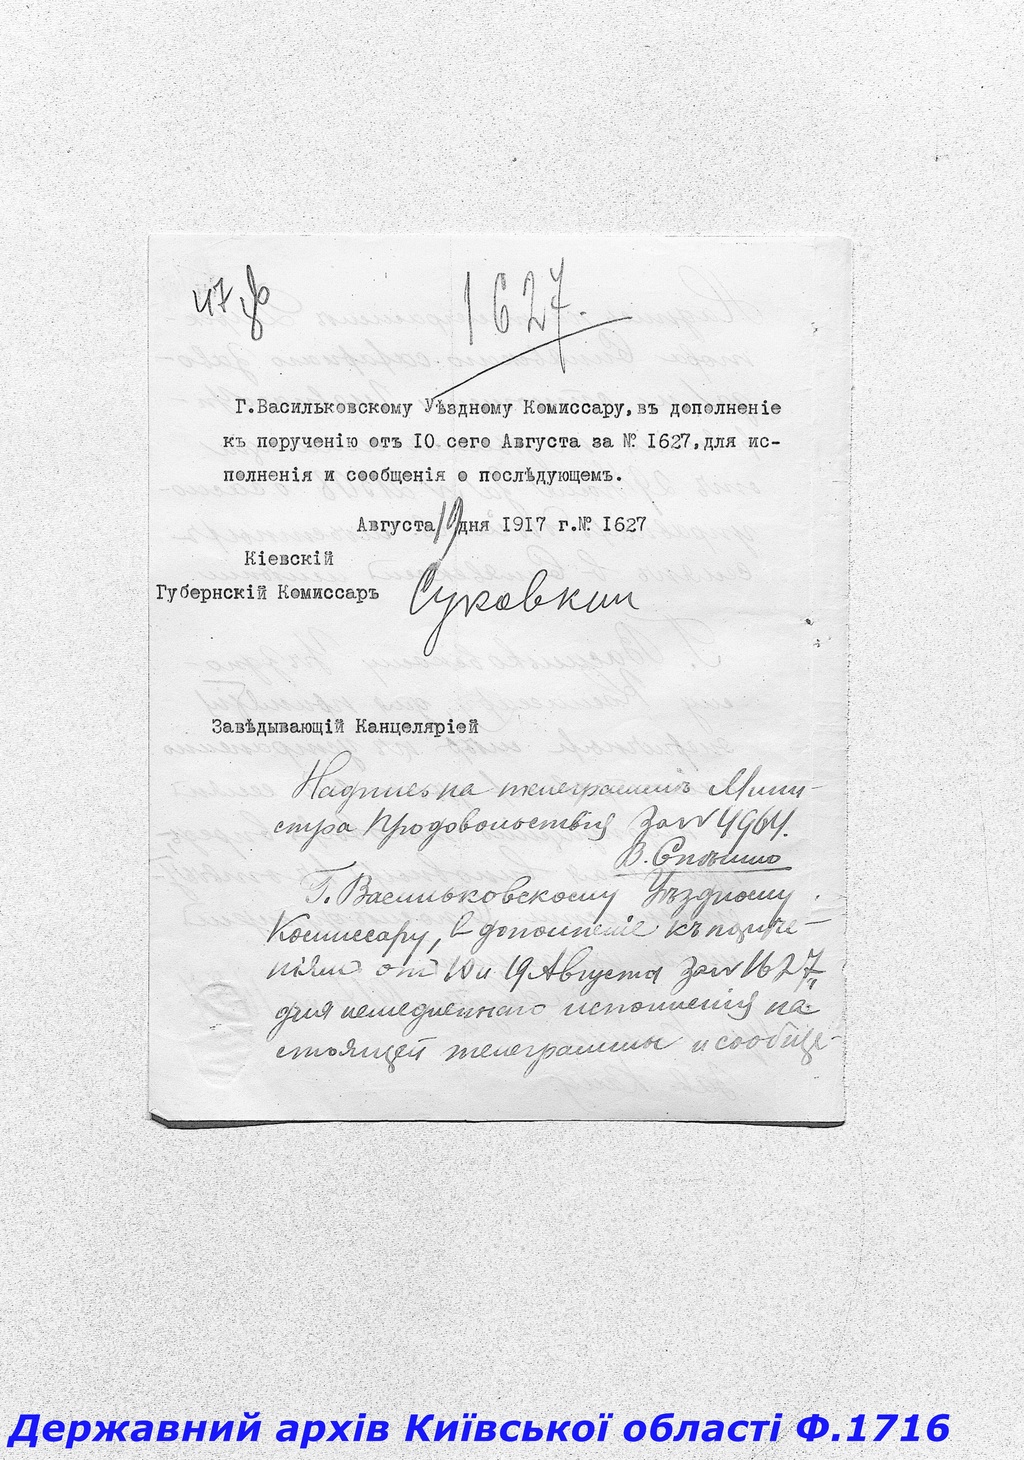 47 об
1627.
Г.Васильковскому Уѣздному Комиссару,въ дополненіе
къ порученію отъ 10 сего Августа за № 1627,для ис-
полненія и сообщенія о послѣдующемъ.
Августа 19 дня 1917 г.№ 1627
Кіевскій
Губернскій Комиссаръ Суковкин
Завѣдывающій Канцеляріей
Надпись на телеграммѣ Мини-
стра Продовольствія за № 4964.
В. Спѣшно
Г. Васильковскому Уѣздному
Комиссару, в дополненіе къ поруче-
ніям от 10 и 19 Августа за № 1627,
для немедленнаго исполненія на-
стоящей телеграммы и сообще-
Державний архів Київської області Ф.1716